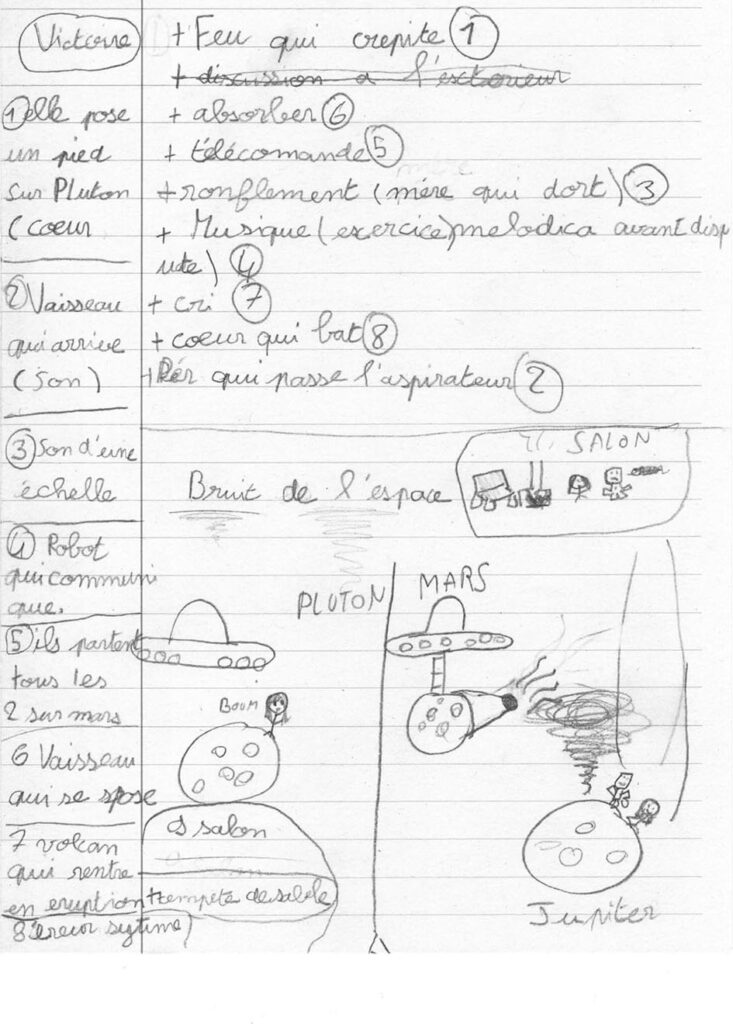 Victoire
+ Feu qui crepite 1
+ discussion a l'exterieur
+ absorber 6
+ télécomande 5
+ ronflement (mére qui dort) 3
+ Musique (exercice) melodica avant disp
ute) 4
+ cri 7
+ coeur qui bat 8
+ qui passe l'aspirateur 2
1 elle pose
un pied
sur Pluton
(coeur
2 Vaisseau
qui arrive
(son)
3 Son d'une
échelle
4 Robot
qui communi
que.
5 ils partent
tous les
2 sur mars
6 Vaisseau
qui se spose
7 volcan
qui rentre
en eruption
8
SALON
Bruit de l'espace
PLUTON
MARS
BOUM
salon
+ tempete de sable
Jupiter